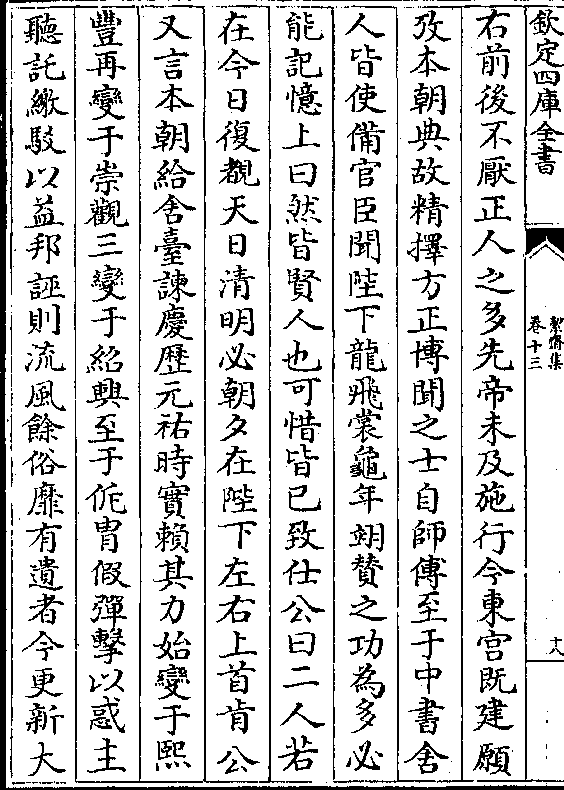 欽定四庫全書
絜齋集
卷十三
十八
右前後不厭正人之多先帝未及施行今東宮既建願
攷本朝典故精擇方正博聞之士自師傅至于中書舍
人皆使備官臣聞陛下龍飛裳龜年翊贊之功為多必
能記憶上曰然皆賢人也可惜皆已致仕公曰二人若
在今日復覩天日清明必朝夕在陛下左右上首肯公
又言本朝給舍臺諫慶歷元祐時實賴其力始變于熙
豐再變于崇觀三變于紹興至于侂胄假彈擊以惑主
聽託繳駁以益邦誣則流風餘俗靡有遺者今更新大